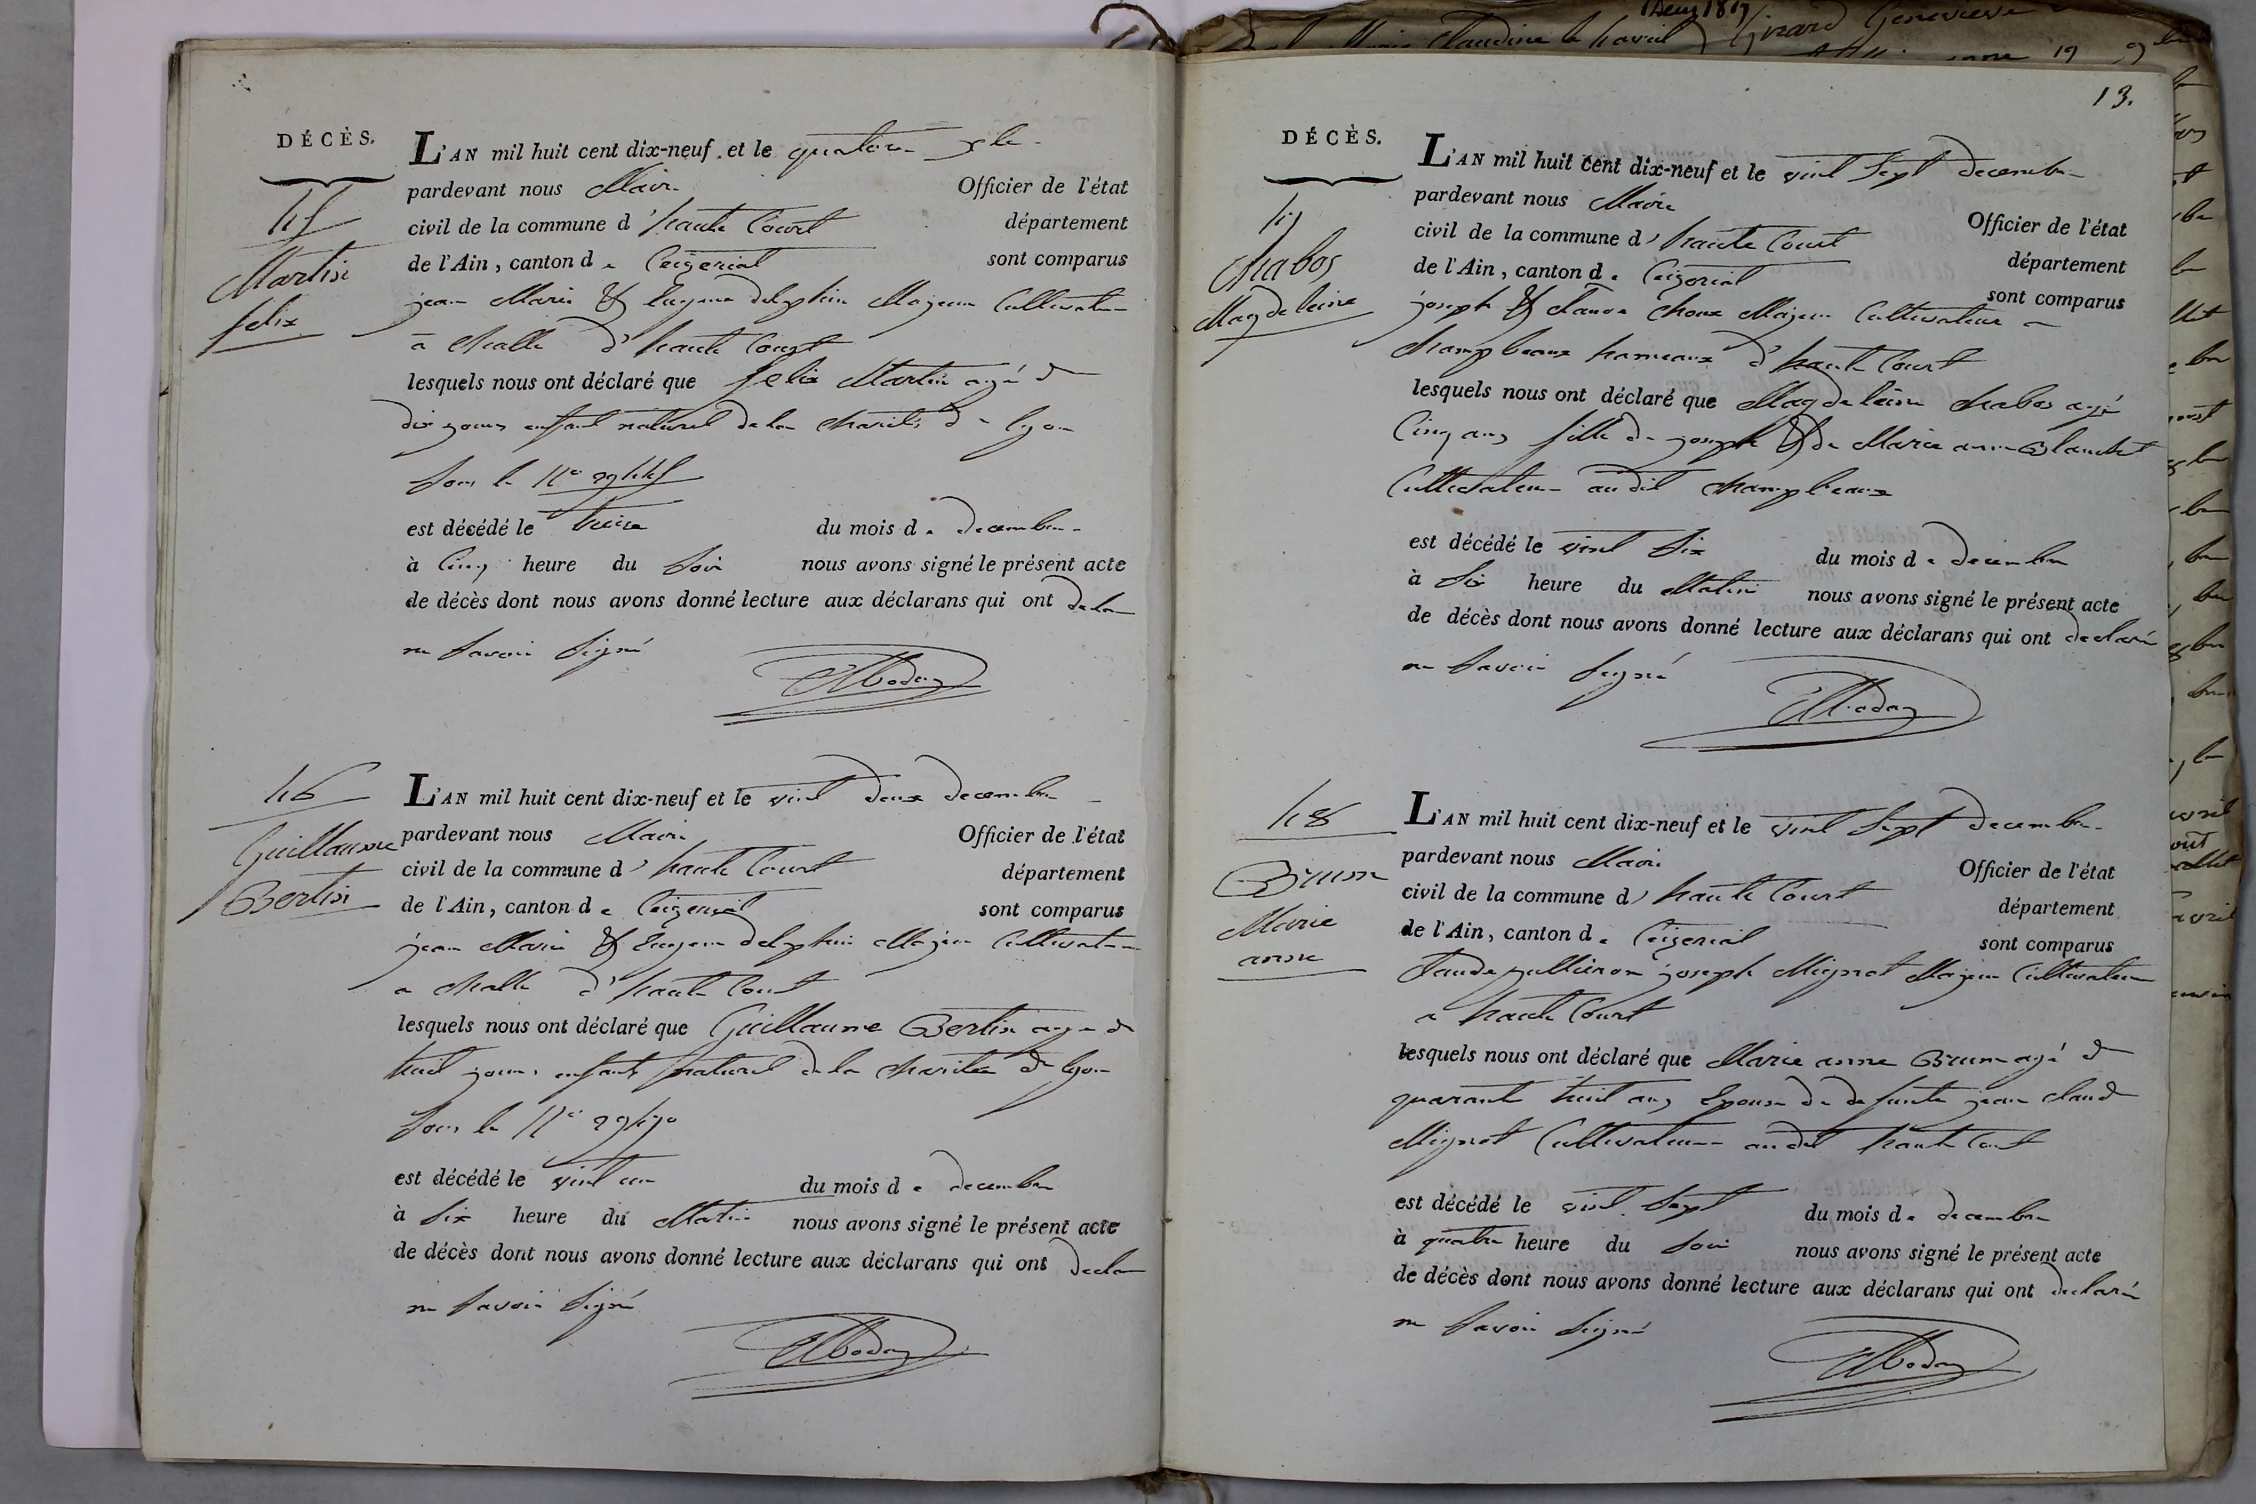 DÉCÈS.
45
Martin
felix
L'AN mil huit cent dix-neuf et le quatorze Xbre
pardevant nous Maire Officier de l'état
civil de la commune d'haute Court département
de l'Ain, canton de Ceizeriat sont comparus
jean Marie & Eugene delphin Majeur Cultivateur
a Challe d'haute Court
lesquels nous ont déclaré que felix Martin agé de
dix jours enfant naturel de la Charité de lyon
Sous le N°
est décédé le treize du mois de decembre
à Cinq heure du Soir nous avons signé le présent acte
de décès dont nous avons donné lecture aux déclarans qui ont
ne Savoir Signé
46
Guillaume
Bertin
L'AN mil huit cent dix-neuf et le vint deux decembre
pardevant nous Maire Officier de l'état
civil de la commune d'haute Court département
de l'Ain, canton de Ceizeriat sont comparus
jean Marie & Eugene delphin Majeur Cultivateur
a Challe d'haute Court
lesquels nous ont déclaré que Guillaume Bertin agé de
huit jours enfant naturel de la Charitée de lyon
Sous le N°
est décédé le vint un du mois de decembre
à Six heure du Matin nous avons signé le présent acte
de décès dont nous avons donné lecture aux déclarans qui ont
ne Savoir Signé
13.
DÉCÈS.
47
Chabos
Magdeleine
L'AN mil huit cent dix-neuf et le vint Sept decembre
pardevant nous Maire Officier de l'état
civil de la commune d'haute Court département
de l'Ain, canton de Ceizeriat sont comparus
joseph & Claude Majeur Cultivateur a
Champbeaux hameaux d'haute Court
lesquels nous ont déclaré que Magdeleine Chabos agé
Cinq ans fille de joseph & de Marie anne Blanchet
Cultivateur audit Champbeaux
est décédé le vint Six du mois de decembre
à Six heure du Matin nous avons signé le présent acte
de décès dont nous avons donné lecture aux déclarans qui ont declaré
ne Savoir Signé
48
Brun
Marie
anne
L'AN mil huit cent dix-neuf et le vint Sept decembre
pardevant nous Maire Officier de l'état
civil de la commune d'haute Court département
de l'Ain, canton de Ceizeriat sont comparus
Claude joseph Mignot Majeur Cultivateur
a haute Court
lesquels nous ont déclaré que Marie anne Brun agé de
quarante huit ans Epouse de defunte jean Claude
Mignot Cultivateur audit haute Court
est décédé le vint Sept du mois de decembre
à quatre heure du Soir nous avons signé le présent acte
de décès dont nous avons donné lecture aux déclarans qui ont declaré
ne Savoir Signé